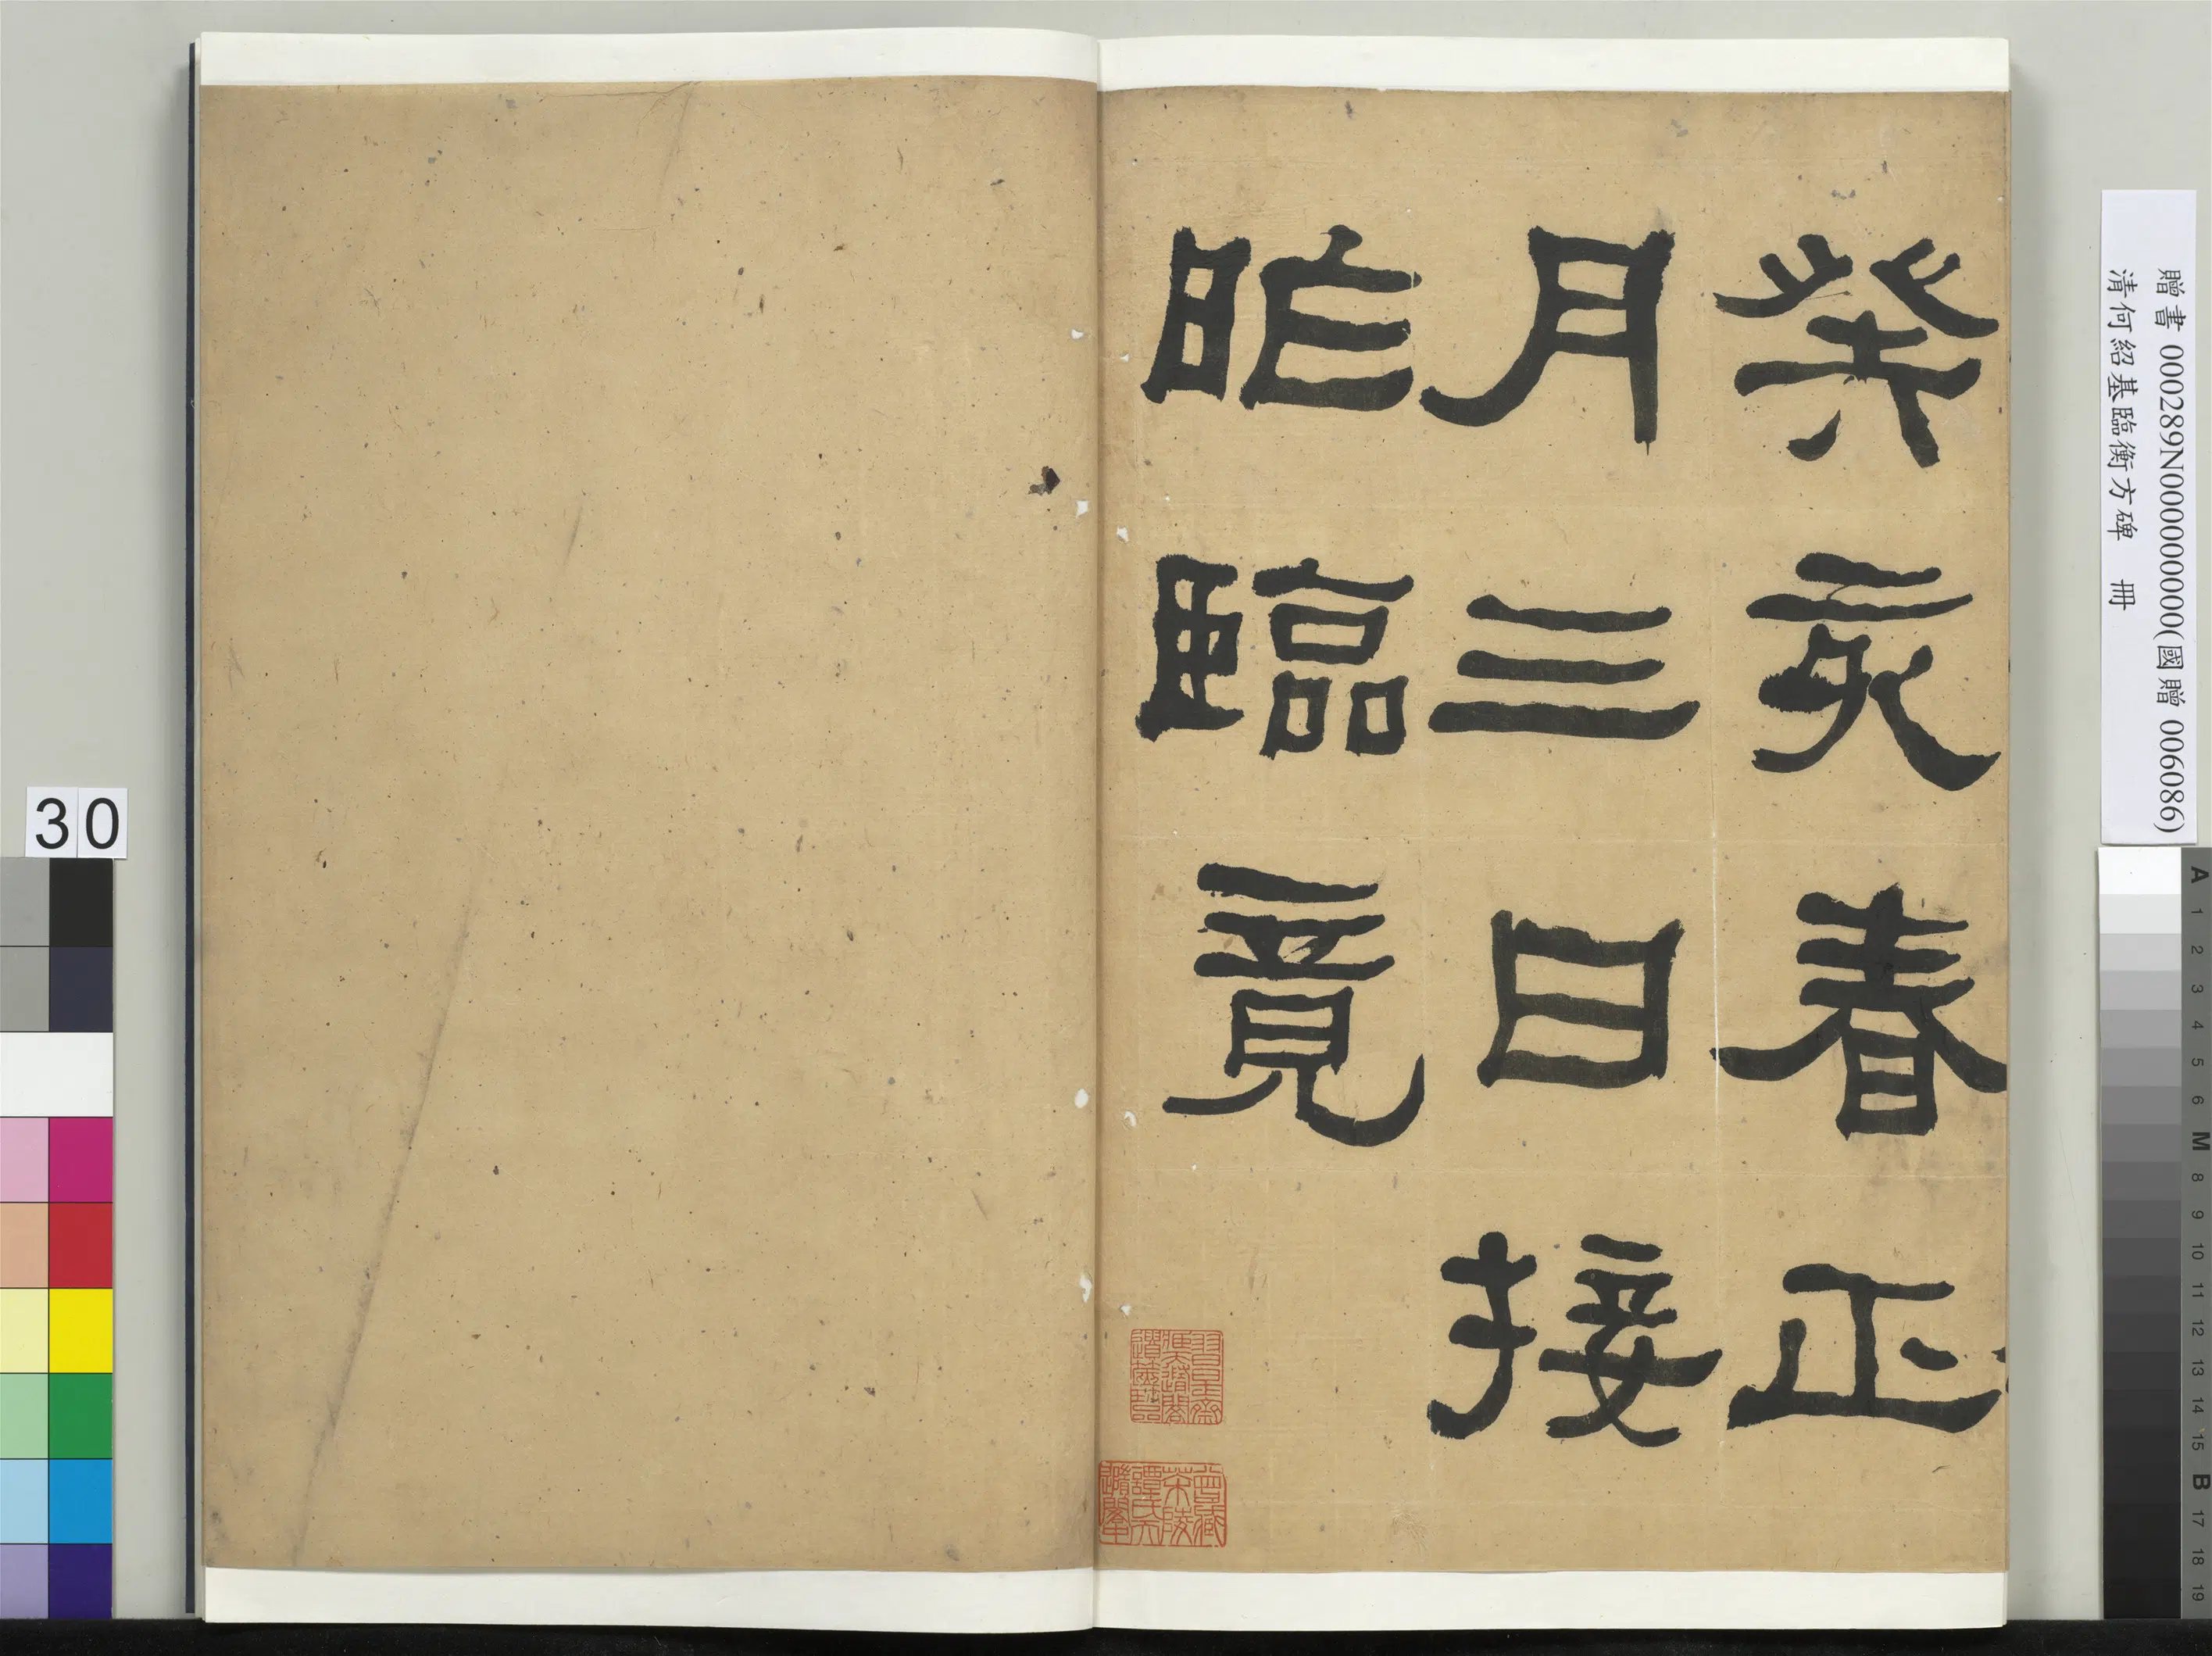 癸亥春正
月三日接
昨臨竟
贈書 000289N000000000(國贈 006086)
清何紹基臨衡方碑 冊
30
A 1 2 3 4 5 6 M 8 9 10 11 12 13 14 15 B 17 18 19